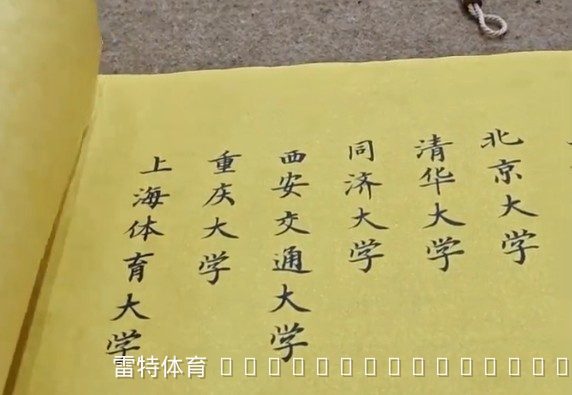 北京大学
清华大学
同济大学
西安交通大学
重庆大学
上海体育大学
雷特体育